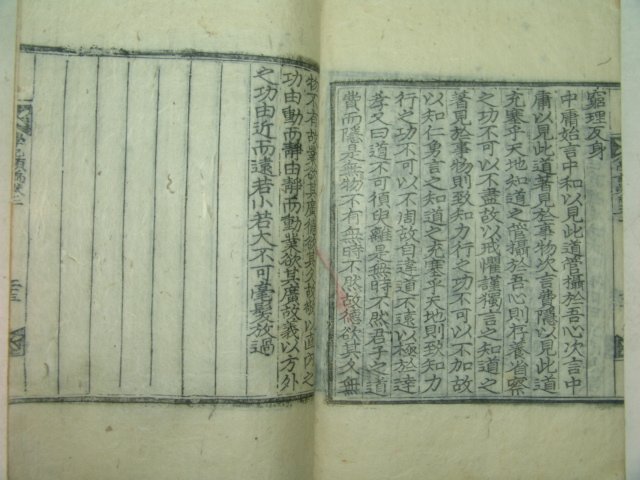 窮理反身
中庸始言中和以見此道管攝於吾心次言中
庸以見此道著見於事物次言費隱以見此道
充塞乎天地知道之管攝於吾心則存養省察
之功不可以不盡故以戒懼謹獨言之知道之
著見於事物則致知力行之功不可以不加故
以知仁勇言之知道之充塞乎天地則致知力
行之功不可以不周故自違道不遠以極於達
孝又曰道不可須臾離是無時不然君子之道
費而隱是無物不有無時不然故德欲其久無
物不有故業欲其廣德欲其久故敬以直內之
功由動而靜由靜而動業欲其廣故義以方外
之功由近而遠若小若大不可毫髮放過